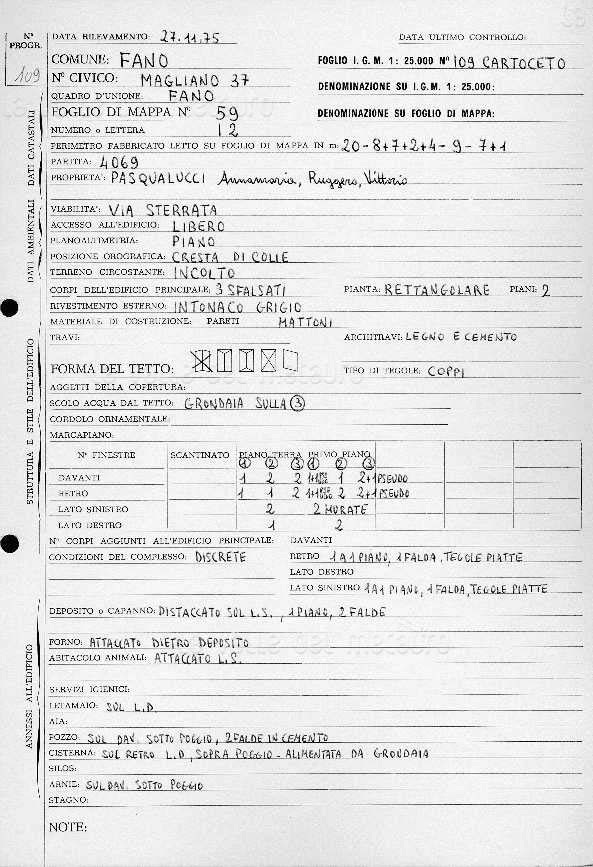 N° PROGR.
109
DATA RILEVAMENTO: 27.11.75
DATA ULTIMO CONTROLLO:
COMUNE: FANO
FOGLIO I. G. M. 1: 25.000 N° 109 CARTOCETO
N° CIVICO: MAGLIANO 37
DENOMINAZIONE SU I.G.M. 1: 25.000:
QUADRO D'UNIONE: FANO
FOGLIO DI MAPPA N° 59
DENOMINAZIONE SU FOGLIO DI MAPPA:
NUMERO o LETTERA 12
PERIMETRO FABBRICATO LETTO SU FOGLIO DI MAPPA IN m: 20-8+7+2+4-9-7+1
PARTITA: 4069
PROPRIETA': PASQUALUCCI Annamaria, Ruggero, Vittorio
DATI AMBIENTALI DATI CATASTALI
VIABILITA': VIA STERRATA
ACCESSO ALL'EDIFICIO: LIBERO
PLANOALTIMETRIA: PIANO
POSIZIONE OROGRAFICA: CRESTA DI COLLE
TERRENO CIRCOSTANTE: INCOLTO
CORPI DELL'EDIFICIO PRINCIPALE: 3 SFALSATI
PIANTA: RETTANGOLARE PIANI: 2
RIVESTIMENTO ESTERNO: INTONACO GRIGIO
MATERIALE DI COSTRUZIONE: PARETI MATTONI
TRAVI:
ARCHITRAVI: LEGNO E CEMENTO
FORMA DEL TETTO:
TIPO DI TEGOLE: COPPI
AGGETTI DELLA COPERTURA:
SCOLO ACQUA DAL TETTO: GRONDAIA SULLA 3
CORDOLO ORNAMENTALE:
MARCAPIANO:
STRUTTURA E STILE DELL'EDIFICIO
N° FINESTRE SCANTINATO PIANO TERRA PRIMO PIANO
1 2 3 1 2 3
DAVANTI 1 2 2 1+1 1 2+1 PSEUDO
RETRO 1 1 2 1+1 2 2+1 PSEUDO
LATO SINISTRO 2 2 MURATE
LATO DESTRO 1 2
N° CORPI AGGIUNTI ALL'EDIFICIO PRINCIPALE: DAVANTI
CONDIZIONI DEL COMPLESSO: DISCRETE
RETRO 1 A 1 PIANO, 1 FALDA, TEGOLE PIATTE
LATO DESTRO
LATO SINISTRO 1 A 1 PIANO, 1 FALDA, TEGOLE PIATTE
DEPOSITO o CAPANNO: DISTACCATO SUL L.S., 1 PIANO, 2 FALDE
FORNO: ATTACCATO DIETRO DEPOSITO
ABITACOLO ANIMALI: ATTACCATO L.S.
ANNESSI ALL'EDIFICIO
SERVIZI IGIENICI:
LETAMAIO: SUL L.D.
AIA:
POZZO: SUL DAV. SOTTO POGGIO, 2 FALDE IN CEMENTO
CISTERNA: SUL RETRO L.D, SOPRA POGGIO - ALIMENTATA DA GRONDAIA
SILOS:
ARNIE: SUL DAV. SOTTO POGGIO
STAGNO:
NOTE: